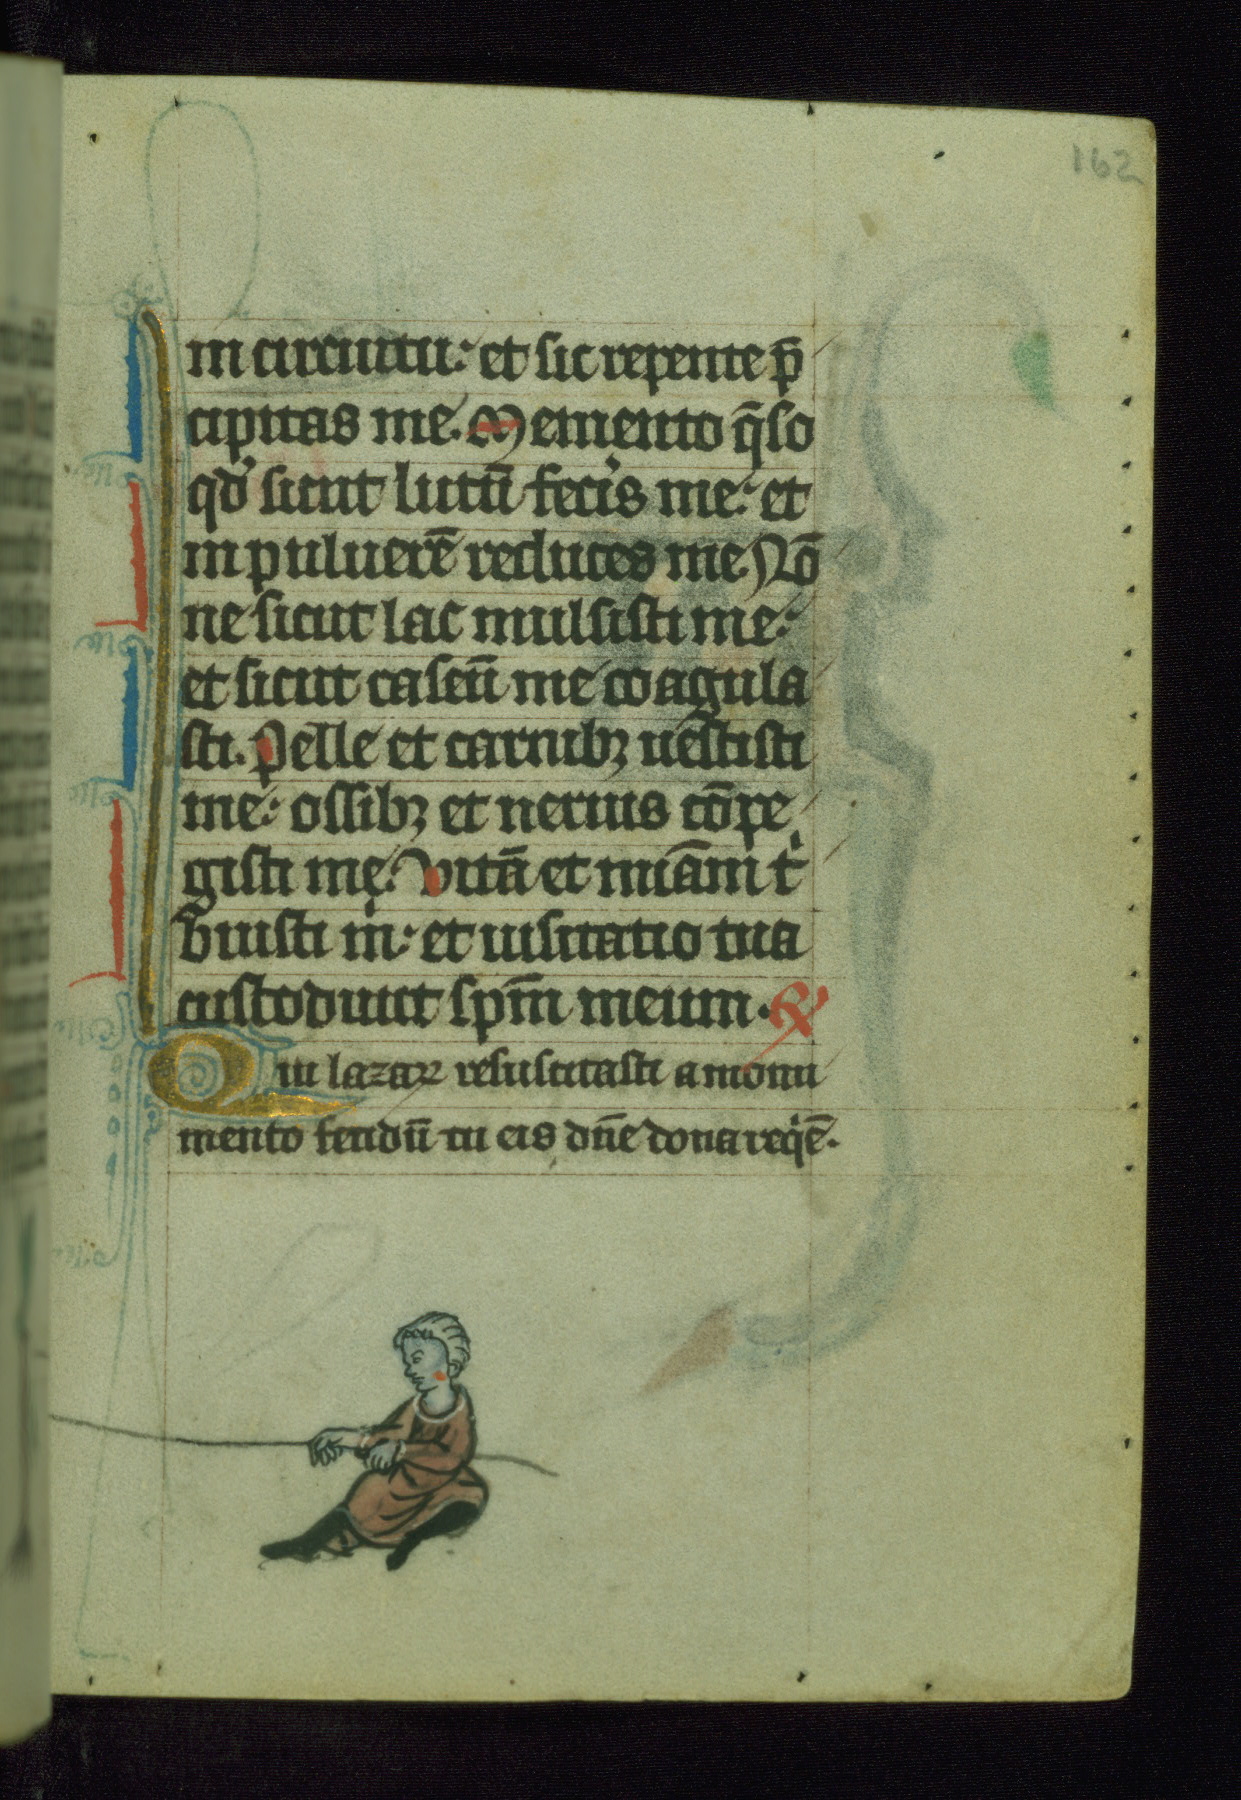 162
in circuitu: et sic repente p̄
cipitas me. Memento q̄so
qd' sicut lutū feci's me: et
in puluerē reduces me. Nō
ne sicut lac mulsisti me:
et sicut caseū me coagula
sti. Pelle et carnibꝫ uestisti
me: ossibꝫ et neruis cōpe
gisti me. Vitā et miām t'
buisti m': et uisitatio tua
custodiuit spm̄ meum. ℟
Qui lazaꝝ resuscitasti a monu
mento fetidū tu eis dn̄e dona reqꞌē.